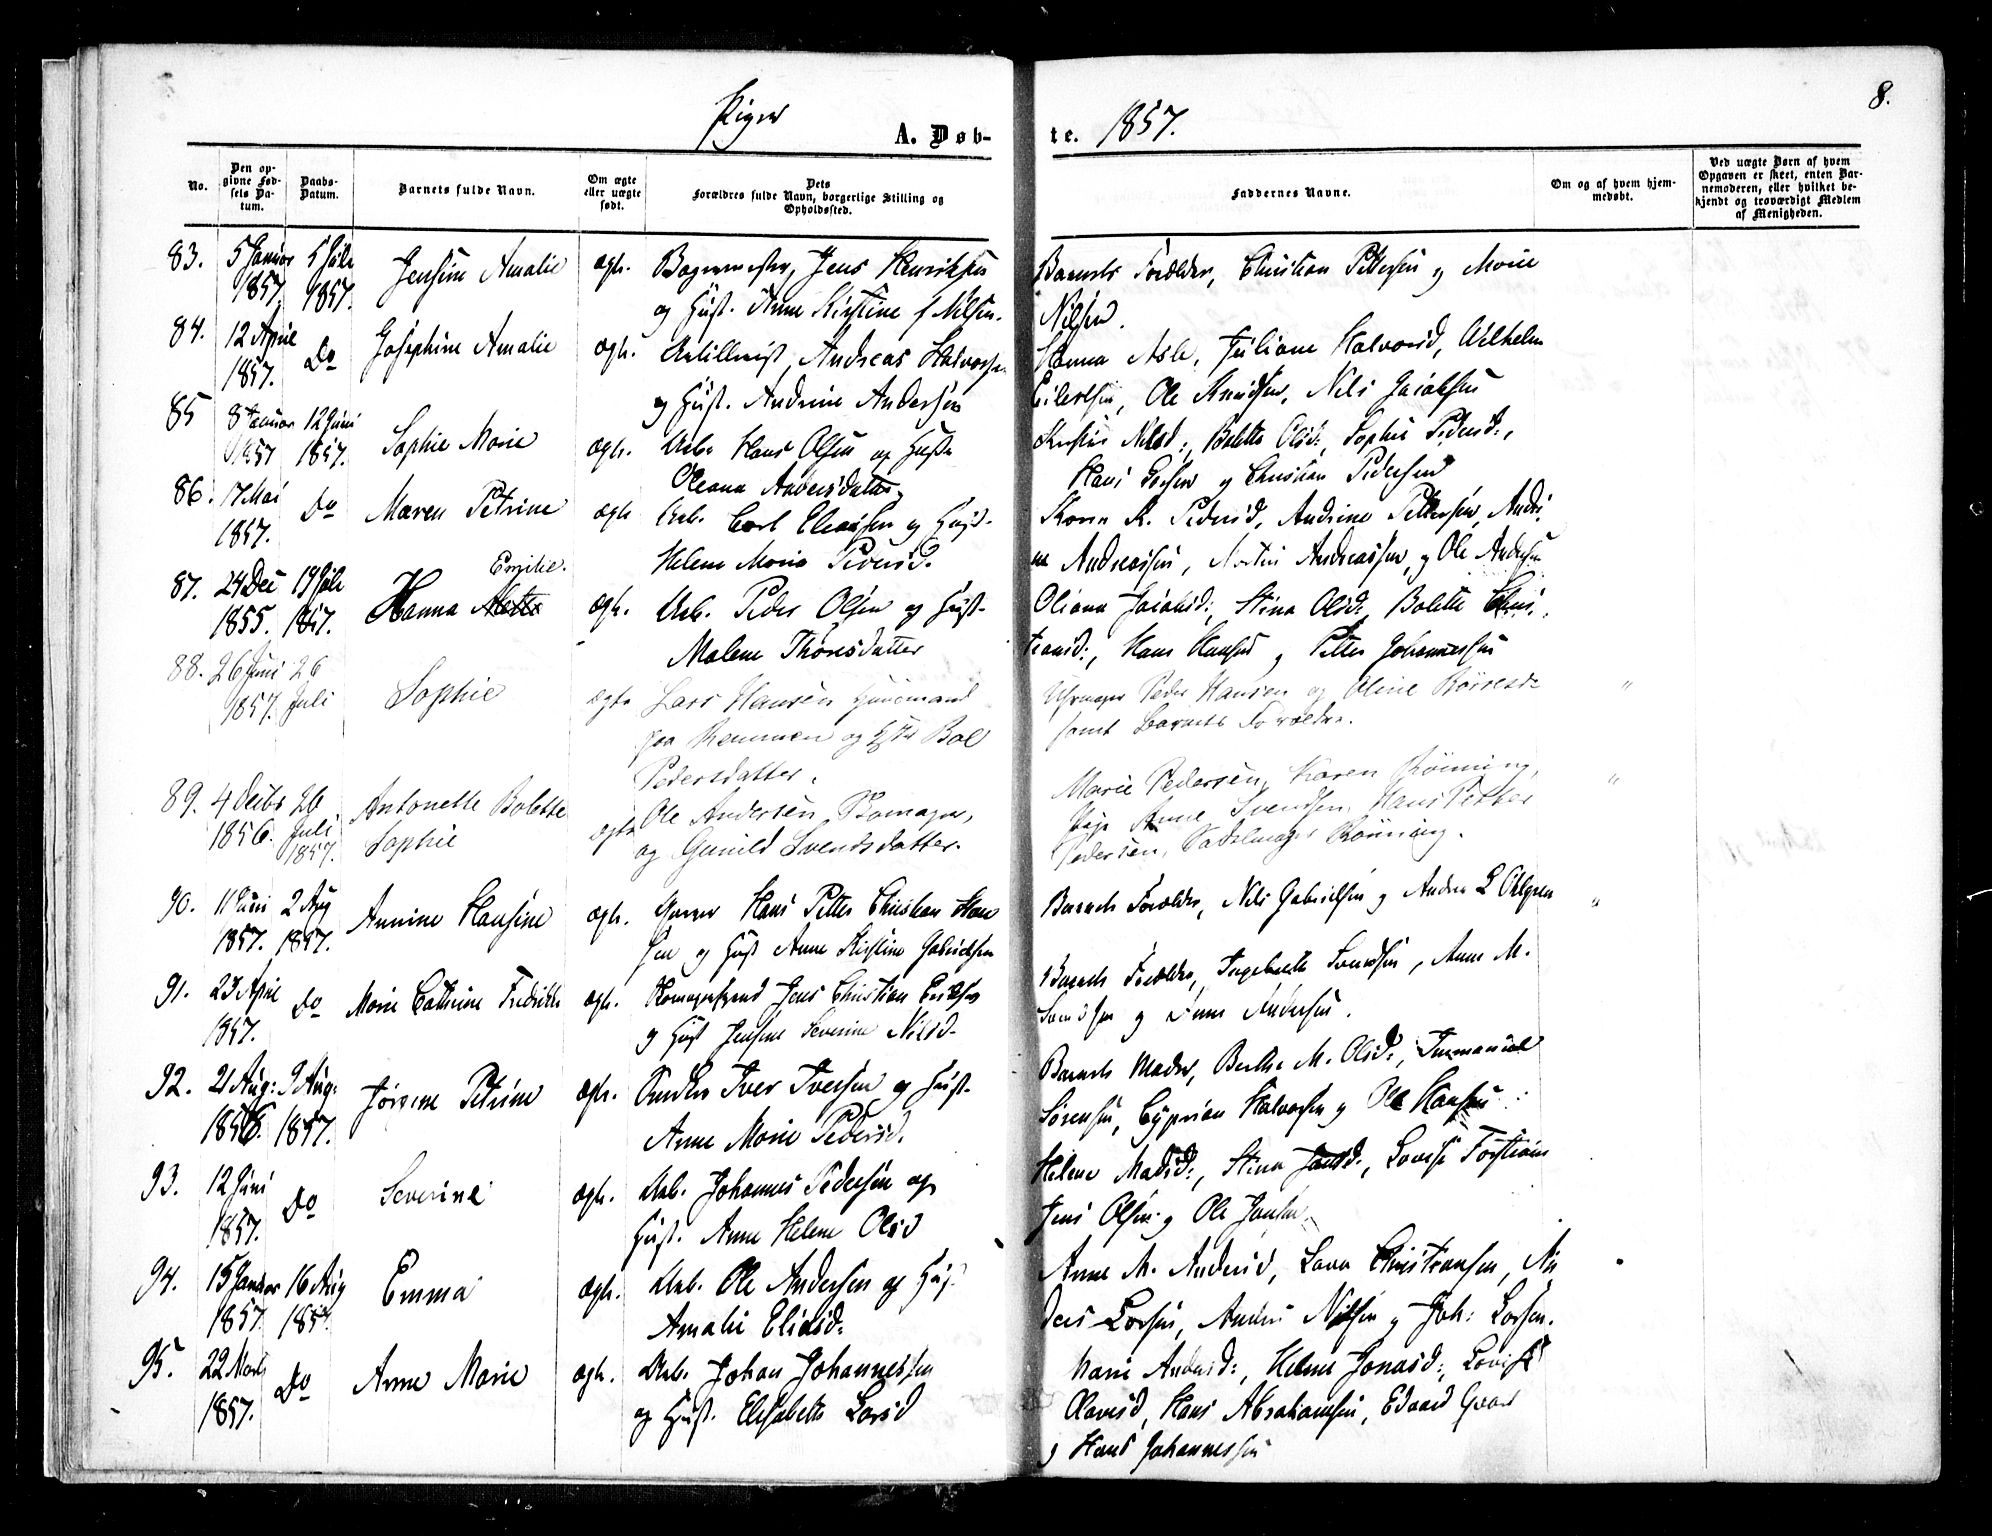 8.
Piger
A. Døb-
te. 1857.
No.
Den op-
givne Fød-
sels Da-
tum.
Daabs-
Datum.
Barnets fulde Navn.
Om ægte
eller uægte
født.
Dets
Forældres fulde Navn, borgerlige Stilling og
Opholdssted.
Faddernes Navne.
Om og af hvem hjem-
medøbt.
Ved uægte Børn af hvem
Opgaven er skeet, enten Bar-
nemoderen, eller hvilket be-
kjendt og troværdigt Medlem
af Menigheden.
83. 5 Januar 5 Juli Jensine Amalie ægte. Bagermester, Jens Henriksen
1857 1857. og Hust. Anne Kirstine f Nilsen.
Barnets Forældre, Christian Pettersen og Marie
Nilsen.
84. 12 April Do Josephine Amalie ægte. Andreas Halvorsen
1857. og Hust. Andrine Andersen
Hanna Juliane Halvorsd, Wilhelm
Eilertsen, Ole Knudsen, Nils Jacobsen
85 8 Januar 12 Juni Sophie Marie ægte. Arb. Hans Olsen og Hust
1857 1857. Oleana Andersdatter
Nilsd:, Bolette Olsd:, Sophie Pedersd:,
Hans og Christian Pedersen
86. 17 Mai Do Maren Petrine ægte Arb. Carl Eliassen og Hust.
1857. Helene Marie Pedersd.
Karen K. Pedersd, Andrine Pettersen, Andri
ne Andreassen, Martin Andreassen, og Ole Andersen
87. 24 Dec 19 Juli Hanna Mette Emilie. ægte. Arb. Peder Olsen og Hust.
1855. 1857. Malene Thoresdatter
Oliana Jacobsd:, Stina Olsd:, Bolette Chris
tiansd:, Hans Hansen og Petter Johannessen
88. 26 Juni 26 Sophie ægte Lars Hansen Huusmand
1857. Juli paa Remmen og Hstr Bol
Pedersdatter.
Uhrmager Peder Hansen og Oline
samt Barnets Forældre. "
89. 4 Decbr 26 Antonette Bolette ægte Ole Andersen,
1856. Juli Sophie og Gunild Svendsdatter.
1857.
Marie Pedersen, Karen Rönning,
Pige Anne Svendsen, Hans Petter
Pedersen, Sadelmager Rönning. "
90. 11 Juni 2 Aug Annine Hansine ægte. Hans Petter Christian Han
1857. 1857. sen og Hust Anne Kirstine Gabrielsen
Barnets Forældre, Nils Gabrielsen og Andrea L Ohlgren "
91. 23 April Do Marie Cathrine Fredrikke ægte. Jens Christian Eriksen
1857. og Hust Jensine Severine Nilsd.
Barnets Forældre, Ingeborg Svendsen, Anne M.
Svendsen og Andersen.
92. 21 Aug: 9 Aug: Jørgine Petrine ægte. Snedker Iver Iversen og Hust.
1856. 1857. Anne Marie Pedersd.
Barnets Moder, Berthe M. Olsd:, Immanuel
Sörensen, Cyprian Halvorsen og Ole Hansen
93. 12 Juni Do Severine ægte. Arb. Johannes Pedersen og
1857. Hust. Anne Helene Olsd
Helene Madsd:, Stina Jansd:, Lovise Torstians
Jens Olsen og Ole Jansen
94. 15 Januar 16 Aug Emma ægte. Arb. Ole Andersen og Hust
1857. 1857. Amalie Eliasd:
Anne M. Andersd, Lava Christiansen, An
ders Larsen, Anders Nilsen og Joh: Larsen.
95. 22 Marts Do Anne Marie ægte. Arb. Johan Johannessen
1857. og Hust. Elisabeth Larsd
Marie Andersd:, Helene Jonasd:, Lovise
Olavesd, Hans Abrahamsen, Edvard
og Hans Johannessen